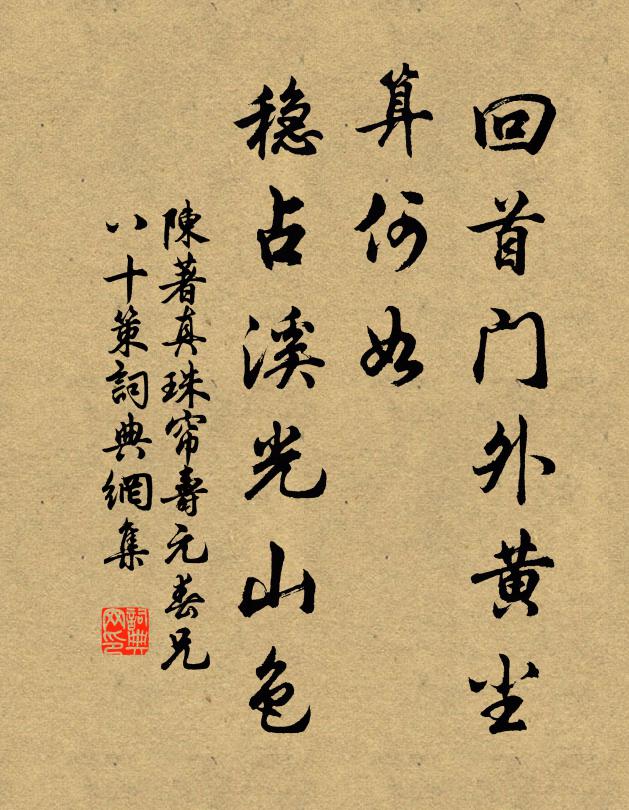 回首门外黄尘
算何如
稳占溪光山色
陳著真珠帘壽元春兄
八十策詞典網集
詞典网印